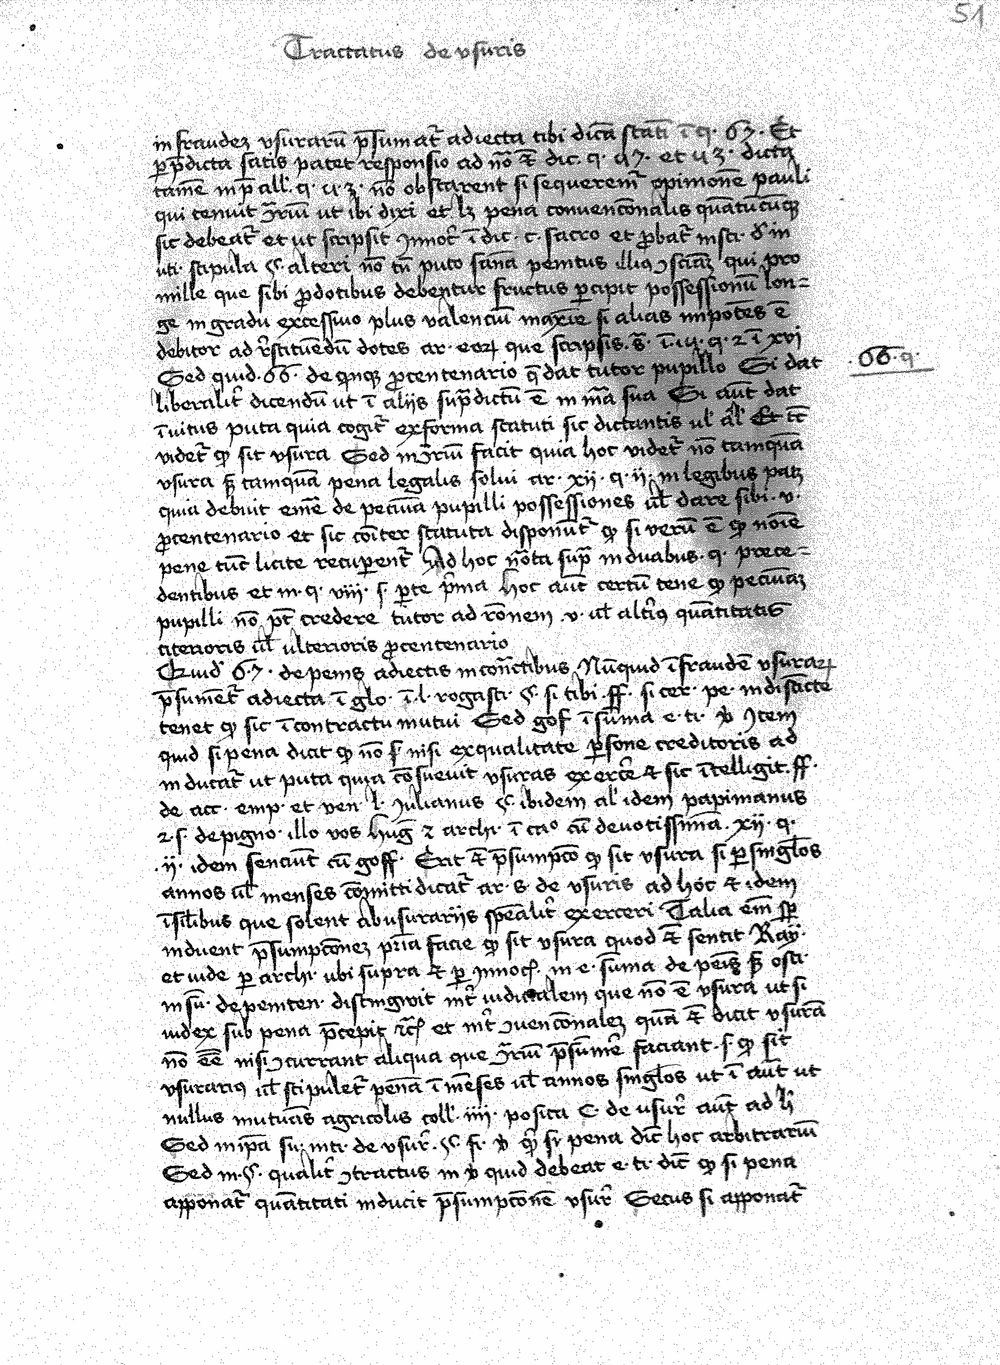 51
Tractatus de vsuris
in fraudez vsurarū p̄sumat᷑ adiecta tibi dicā stati ī q. 67. Et
p p̄dicta satis patet responsio ad nō & dic. q. 47. et
tamē in p̄ all. q. 43. nō obstarent si sequerem᷑ opinionē pauli
qui tenuit ut ibi dixi et lz pena convencōnalis quātūcūq
sic debeat᷑ et ut scripsit Innoc̄ ī dic. c. sacro et p̄bat᷑ insti. de in
uti. stipula §. alteri nō tn̄ puto sanā penitus illiꝰ ꝯsciaz qui pro
mille que sibi p̄dotibus debentur fructus p̄cipit possessionū lon=
ge in gradu excessiuo plus valenciū maxīe si alias impotēs ē
debitor ad r̄stituēdū dotes ar. eoꝝ que scripsi
Sed quid. 66. de qinq; p̄centenario q̄ dat tutor pupillo Si dat
.66. q.
liberalit᷑ dicendū ut ī aliis sup̄dictū ē in mā sua Si aut̄ dat
īuitus puta quia cogit᷑ ex forma statuti sic dictantis ul al Et tc̄
videt᷑ qp sit vsura Sed in ꝯr̄iū facit quia hoc videt᷑ nō tamquā
vsura s̄ tamquā pena legalis solui ar. xii. q. ii. in legibus patz
quia debuit em̄e de pecunia pupilli possessiones ul̄ dare sibi. v.
p̄centenario et sic cōiter statuta disponūt᷑ qp si verū ē qp noīe
pene tūc licite recuperent᷑ Ad hoc n̄ota sup̄ in duabus. q. prece=
dentibus et in. q. viii. s. p̄te p̄ima hoc aut̄ certū tene qp pecuniaz
pupilli nō pt̄ credere tutor ad rōnem .v. ul̄ alt̄iꝰ quātitatis
citerioris ul̄ ulterioris p̄centenario
Quid 67. de penis adiectis in cōn̄ctibus Nūquid ī fraudē vsuraꝝ
p̄sumēt᷑ adiecta ī glo. ī. l. rogasti. §. si tibi. ff. si cer. pe. indistīcte
tenet qp sic ī contractu mutui Sed gof ī sūma e. ti. Item
quid si pena dicit qp nō s̄ nisi ex qualitate p̄sone creditoris ad
inducat᷑ ut puta quia cōsuevit vsuras ex erc̄e & sic ītelligit. ff.
de acc. emp. et ven. l. Iulianus §. ibidem al idem papinianus
2. s. de pigno. illo vos hug 2 archi. ī cao cū devotissimā. xii. q.
.ii. idem senciūt cū goff. Erit & p̄sumpcō qp sit vsura si p singlos
annos ul̄ menses cōmitti dicat᷑ ar. s. de vsuris ad hoc & idem
ī silibus que solent ab usurariis sp̄ealit̄ exerceri Talia em̄ sp̄
induent p̄sumpcōnez p̄ria facie qp sit vsura quod & sentit Ray.
et vide p archi. ubi supra & p Innoc. in e. sūma de penis s̄ osti.
in sū. de peniten. distingwit int̄ iudicialem que nō ē vsura ut si
iudex sub pena p̄cepit et int̄ ꝯuencōnalez quā & dicit vsurā
nō eē nisi ꝯcurrant aliqua que ꝯr̄iū p̄sumēr faciant. s. qp sit
vsurariꝰ ul̄ stipulet᷑ penā ī mēses ul̄ annos singlos ut ī aut̄ ut
nullus mutuās agricolis coll. iiii. posita C. de usur̄ aut̄ ad h̄
Sed in ip̄a su. inti. de vsur̄. §. fi. si pena dic̄ hoc arbitrariū
Sed in. §. qualit̄ ꝯtractus in quid debeat e. ti. dic̄ qp si pena
apponat᷑ quātitati inducit p̄sumpcōnē vsur̄ Secus si apponat᷑